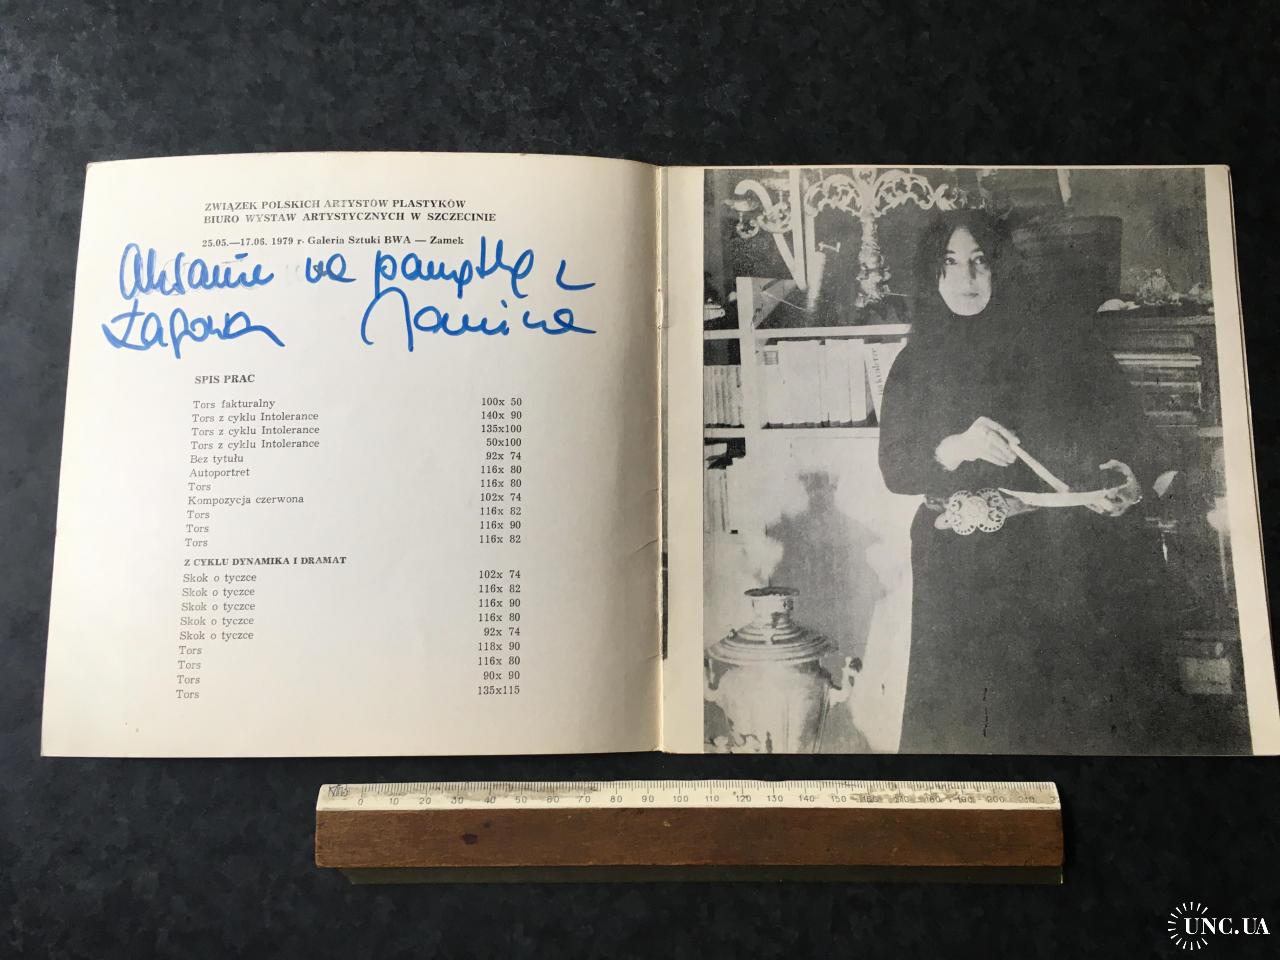 ZWIĄZEK POLSKICH ARTYSTÓW PLASTYKÓW
BIURO WYSTAW ARTYSTYCZNYCH W SZCZECINIE
25.05.—17.06. 1979 r. Galeria Sztuki BWA — Zamek
na pamiątkę z
Łagowa Janina
SPIS PRAC
Tors fakturalny 100x 50
Tors z cyklu Intolerance 140x 90
Tors z cyklu Intolerance 135x100
Tors z cyklu Intolerance 50x100
Bez tytułu 92x 74
Autoportret 116x 80
Tors 116x 80
Kompozycja czerwona 102x 74
Tors 116x 82
Tors 116x 90
Tors 116x 82
Z CYKLU DYNAMIKA I DRAMAT
Skok o tyczce 102x 74
Skok o tyczce 116x 82
Skok o tyczce 116x 90
Skok o tyczce 116x 80
Skok o tyczce 92x 74
Tors 118x 90
Tors 116x 80
Tors 90x 90
Tors 135x115
0 10 20 30 40 50 60 70 80 90 100 110 120 130 140 150 160 170 180 190 200 210
UNC.UA